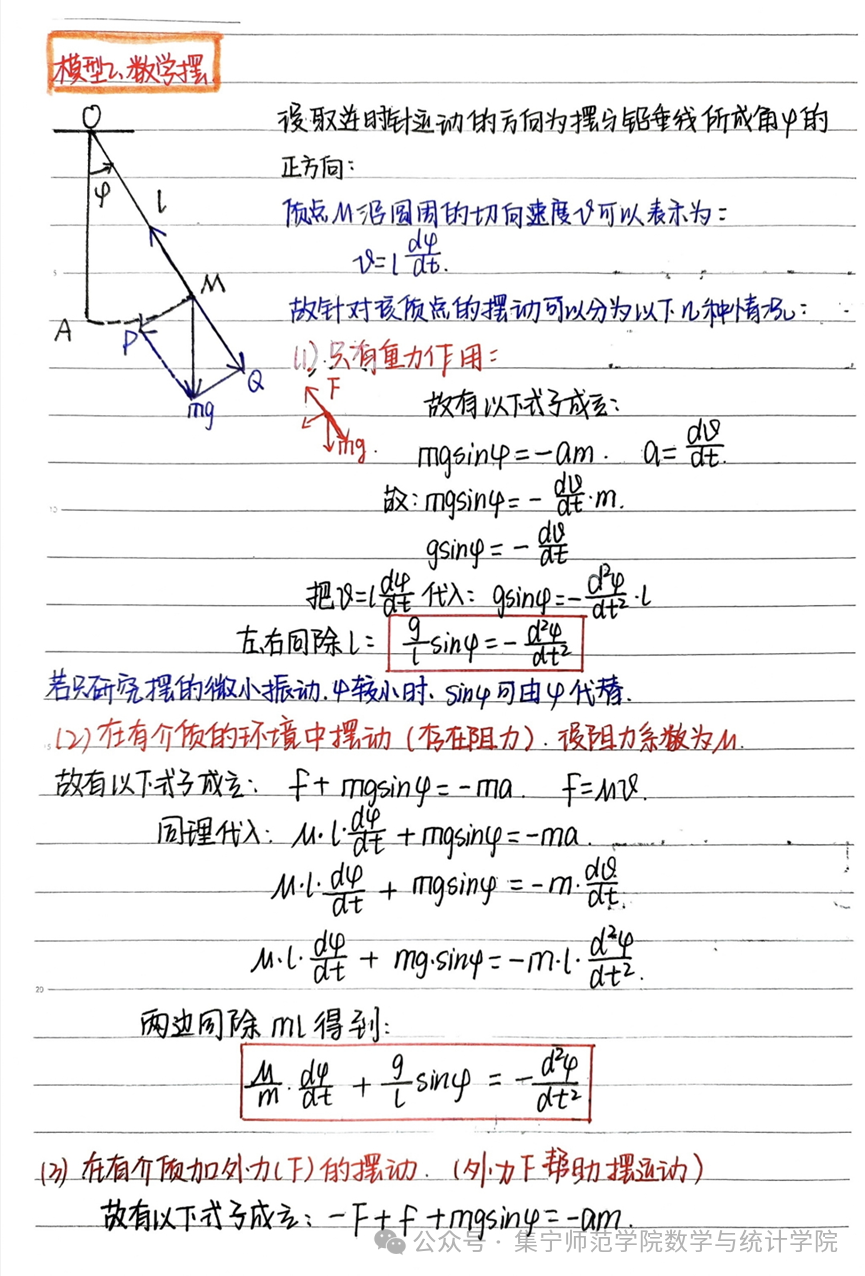 模型2、数学摆.
O
φ
l
M
A
P
Q
mg
设取逆时针运动的方向为摆与铅垂线所成角φ的
正方向:
质点M沿圆周的切向速度v可以表示为:
v=l dφ/dt.
故针对该质点的摆动可以分为以下几种情况:
(1).只有重力作用:
F
mg.
故有以下式子成立:
mgsinφ=-am. a=dv/dt.
故:mgsinφ=-dv/dt·m.
gsinφ=-dv/dt
把v=l dφ/dt代入: gsinφ=-d²φ/dt²·l
左右同除l: g/l sinφ=-d²φ/dt²
若只研究摆的微小振动.φ较小时. sinφ可由φ代替.
(2)在有介质的环境中摆动(存在阻力).设阻力系数为μ.
故有以下式子成立: f+mgsinφ=-ma. f=μv.
同理代入: μ·l·dφ/dt+mgsinφ=-ma.
μ·l·dφ/dt+mgsinφ=-m·dv/dt.
μ·l·dφ/dt+mg·sinφ=-m·l·d²φ/dt².
两边同除ml得到:
μ/m·dφ/dt+g/l sinφ=-d²φ/dt²
(3)在有介质加外力(F)的摆动.(外力F帮助摆运动)
故有以下式子成立: -F+f+mgsinφ=-am.
公众号·集宁师范学院数学与统计学院